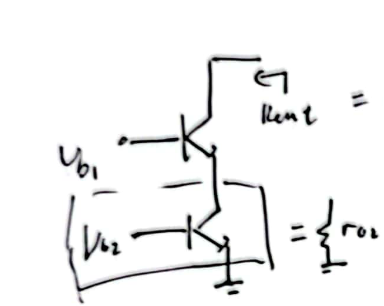 Rout =
Vb1
Vb2
= ro2